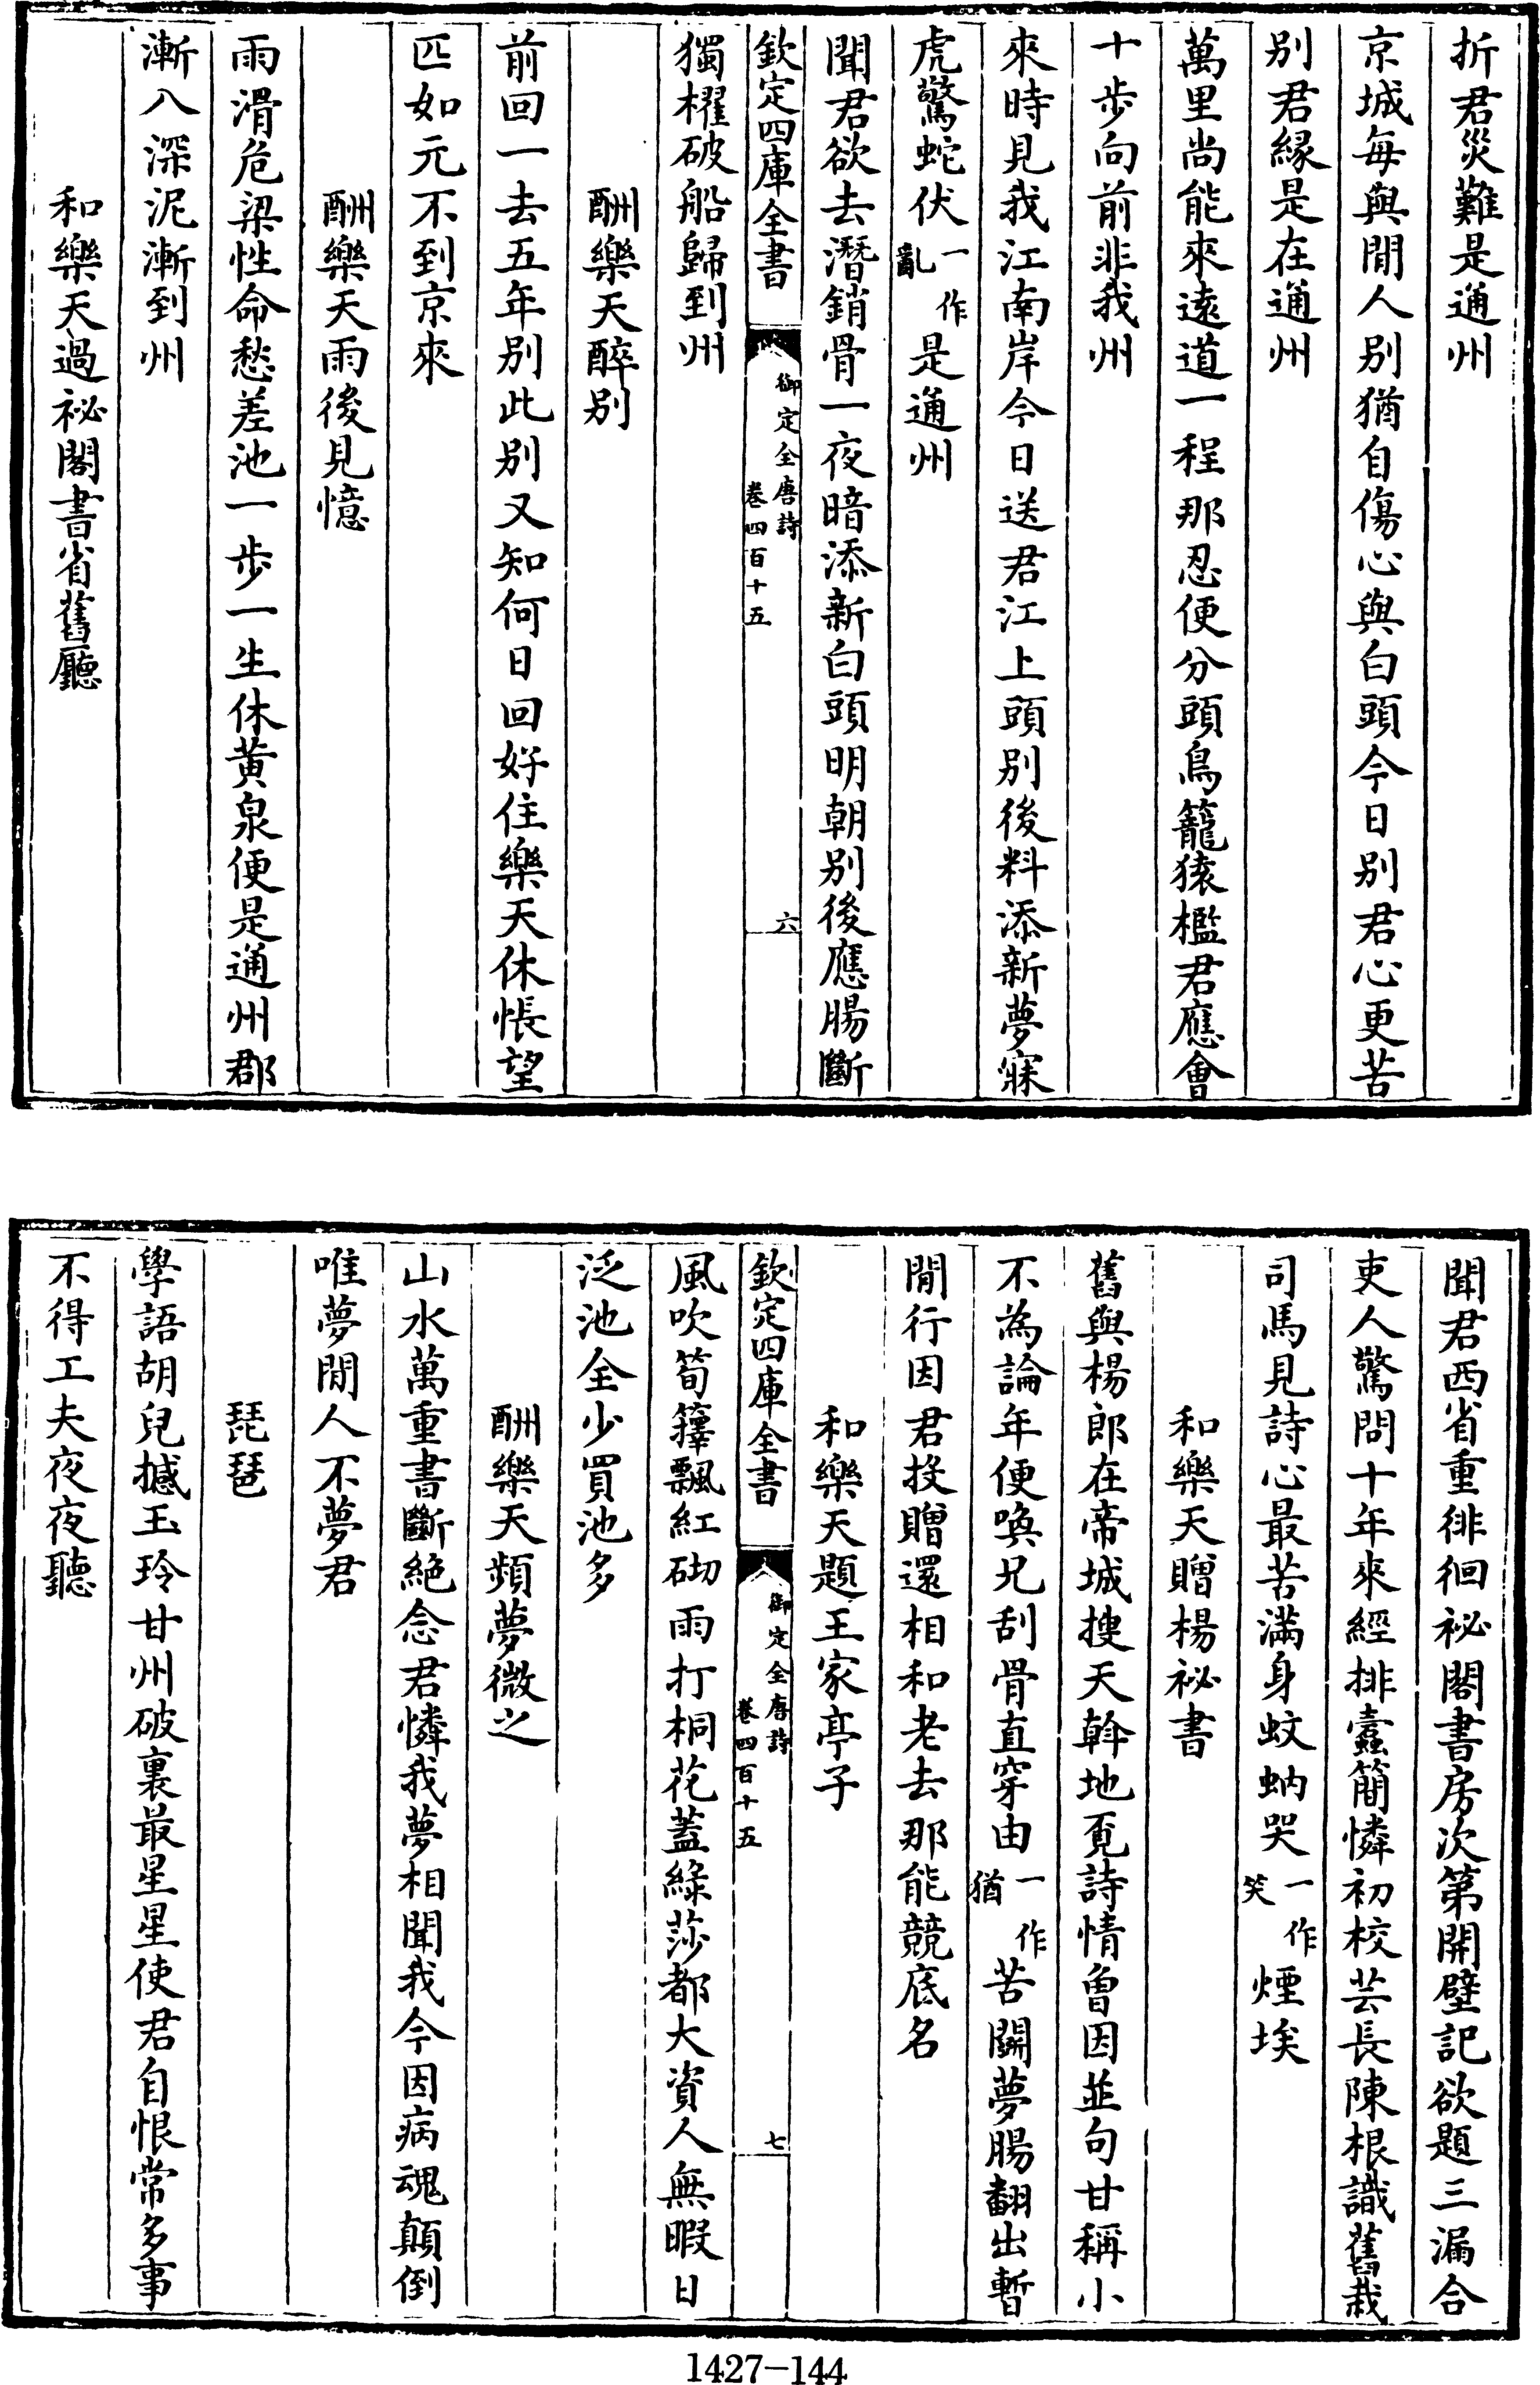 折君災難是通州
京城每與閒人别猶自傷心與白頭今日别君心更苦
别君緣是在通州
萬里尚能來逺道一程那忍便分頭鳥籠猿檻君應會
十步向前非我州
來時見我江南岸今日送君江上頭别後料添新夢寐
虎驚蛇伏一作亂是通州
聞君欲去潛銷骨一夜暗添新白頭明朝别後應腸斷
欽定四庫全書 御定全唐詩 卷四百十五 六
獨櫂破船歸到州
酬樂天醉别
前回一去五年别此别又知何日回好住樂天休悵望
匹如元不到京來
酬樂天雨後見憶
雨滑危梁性命愁差池一步一生休黄泉便是通州郡
漸八深泥漸到州
和樂天過祕閣書省舊廳
聞君西省重徘徊祕閣書房次第開壁記欲題三漏合
吏人驚問十年來經排蠧簡憐初校芸長陳根識舊栽
司馬見詩心最苦滿身蚊蚋哭一作笑煙埃
和樂天贈楊祕書
舊與楊郎在帝城搜天斡地覔詩情曾因並句甘稱小
不為論年便喚兄刮骨直穿由一作猶苦鬬夢腸翻出暫
閒行因君投贈還相和老去那能競底名
和樂天題王家亭子
欽定四庫全書 御定全唐詩 卷四百十五 七
風吹筍籜飄紅砌雨打桐花蓋綠莎都大資人無暇日
泛池全少買池多
酬樂天頻夢微之
山水萬重書斷絶念君憐我夢相聞我今因病魂顛倒
唯夢閒人不夢君
琵琶
學語胡兒撼玉玲甘州破裏最星星使君自恨常多事
不得工夫夜夜聽
1427-144